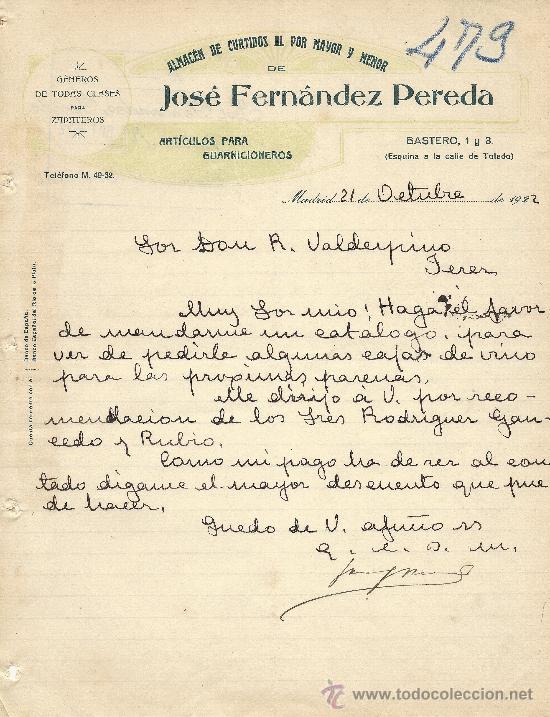 479
ALMACÉN DE CURTIDOS AL POR MAYOR Y MENOR
DE
José Fernández Pereda
GÉNEROS
DE TODAS CLASES
PARA
ZAPATEROS
ARTÍCULOS PARA
GUARNICIONEROS
BASTERO, 1 y 3.
(Esquina a la calle de Toledo)
Teléfono M. 49-32.
Madrid 21 de Octubre de 1922
Sor Don R. Valdespino
Jerez
Muy Sor mio! Haga el favor
de mandarme un catálogo, para
ver de pedirle algunas cajas de vino
para las proximas pascuas.
Me dirijo á V. por reco-
mendacion de los Sres Rodriguez Gan-
cedo y Rubio.
Como mi pago ha de ser al con-
tado digame el mayor descuento que pue
de hacer.
Quedo de V. afmo ss
q. e. s. m.
Banco de España.
Banco Español del Río de la Plata.
todocoleccion
www.todocoleccion.net